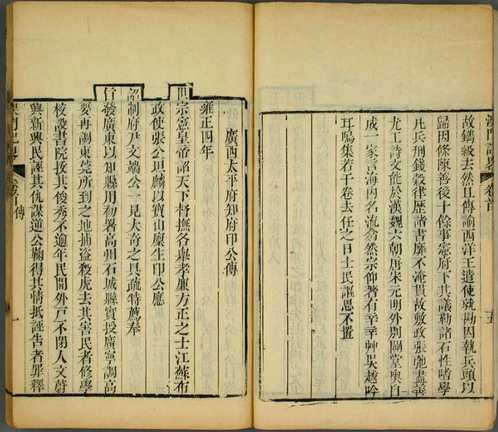 澳門記畧 卷首 五
故鐫級去然且傳諭西洋王遣使就勘因執兵頭以
歸因條陳善後十條事憲府下其議勒諸石性嗜學
凡兵刑錢穀律歷諸書靡不淹貫故敷政張弛盡善
尤工詩文能於漢魏六朝唐宋元明外別闢堂奧自
成一家言海內名流翕然宗仰著有莘莘草吳越吟
耳鳴集若干卷去任之日士民謳思不置
廣西太平府知府印公傳
雍正四年
世宗憲皇帝詔天下督撫各舉孝廉方正之士江蘇布
政使張公坦麟以寶山廩生印公應
詔制府尹文端公一見大奇之具疏特薦奉
旨發廣東以知縣用初署高州石城縣實授廣寧調高
要再調東莞所到之地捕盜殺虎去其害民者修學
校設書院拔其俊秀不逾年民間外戶不閉人文蔚
興新興民誣其仇謀逆公鞫得其情抵誣告者罪釋
卷首傳 一